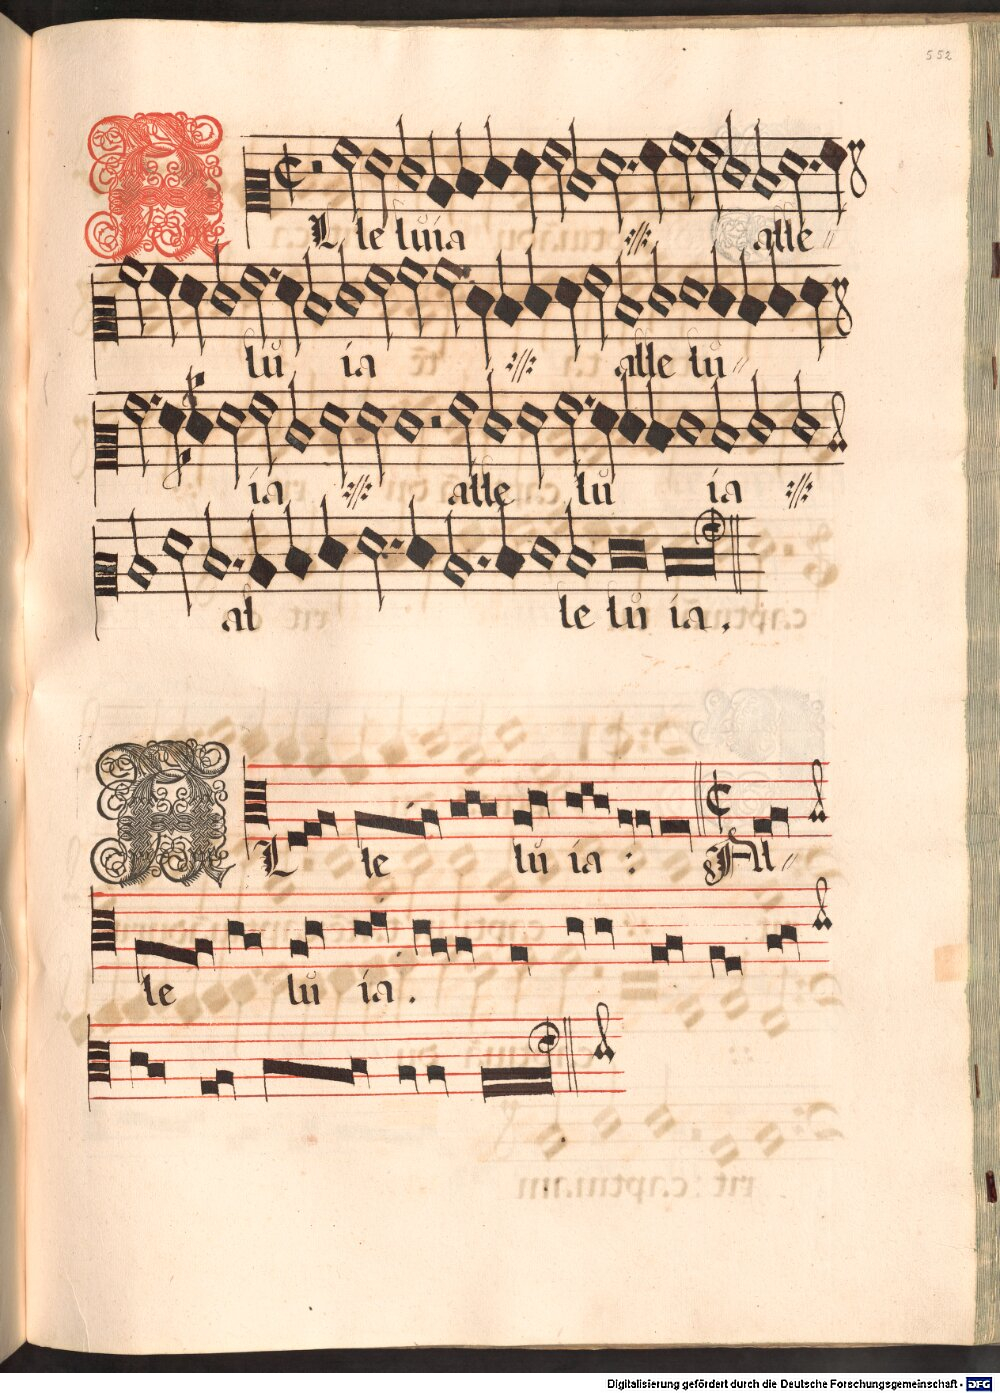 552
ALleluia alle
lu ia alle lu
ia alle lu ia
al le lu ia.
AL le lu ia : All
le lu ia.
Digitalisierung gefördert durch die Deutsche Forschungsgemeinschaft - DFG